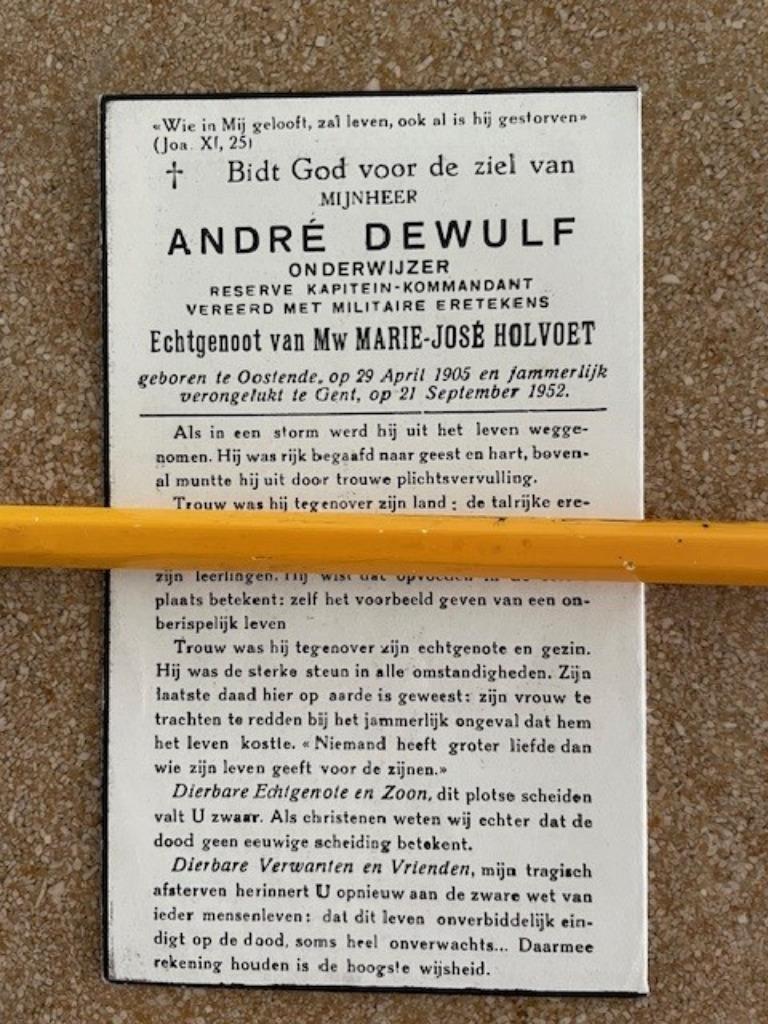 «Wie in Mij gelooft, zal leven, ook al is hij gestorven»
(Joa. XI, 25)
† Bidt God voor de ziel van
MIJNHEER
ANDRÉ DEWULF
ONDERWIJZER
RESERVE KAPITEIN-KOMMANDANT
VEREERD MET MILITAIRE ERETEKENS
Echtgenoot van Mw MARIE-JOSÉ HOLVOET
geboren te Oostende, op 29 April 1905 en jammerlijk
verongelukt te Gent, op 21 September 1952.
Als in een storm werd hij uit het leven wegge-
nomen. Hij was rijk begaafd naar geest en hart, boven-
al muntte hij uit door trouwe plichtsvervulling.
Trouw was hij tegenover zijn land : de talrijke ere-
zijn leerlingen. Hij wist dat opvoeden in de
plaats betekent: zelf het voorbeeld geven van een on-
berispelijk leven
Trouw was hij tegenover zijn echtgenote en gezin.
Hij was de sterke steun in alle omstandigheden. Zijn
laatste daad hier op aarde is geweest: zijn vrouw te
trachten te redden bij het jammerlijk ongeval dat hem
het leven kostte. «Niemand heeft groter liefde dan
wie zijn leven geeft voor de zijnen.»
Dierbare Echtgenote en Zoon, dit plotse scheiden
valt U zwaar. Als christenen weten wij echter dat de
dood geen eeuwige scheiding betekent.
Dierbare Verwanten en Vrienden, mijn tragisch
afsterven herinnert U opnieuw aan de zware wet van
ieder mensenleven: dat dit leven onverbiddelijk ein-
digt op de dood, soms heel onverwachts... Daarmee
rekening houden is de hoogste wijsheid.